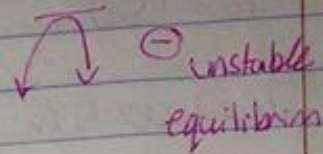 ⊖
unstable
equilibrium